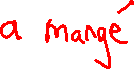 a mangé